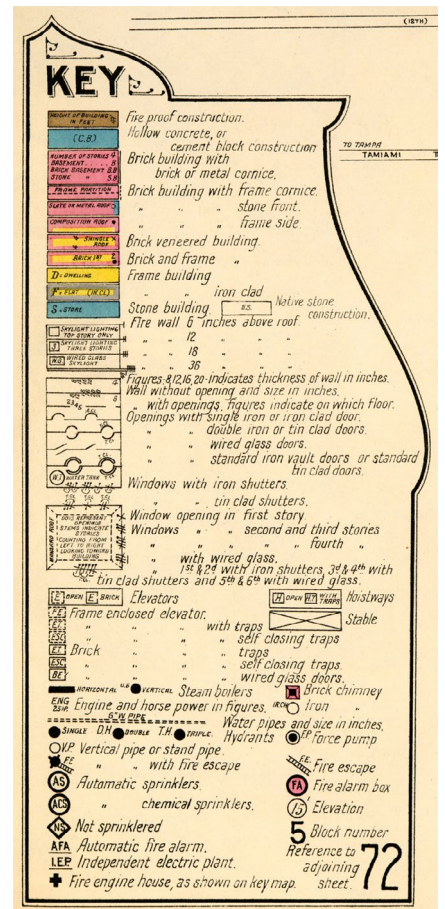 (18TH)
KEY
TO TAMPA
TAMIAMI
HEIGHT OF BUILDING IN FEET
Fire proof construction.
(C.B)
Hollow concrete, or
cement block construction
NUMBER OF STORIES 4
BASEMENT B
BRICK BASEMENT B.B
STONE " S.B
Brick building with
brick or metal cornice.
FRAME PARTITION
Brick building with frame cornice.
SLATE OR METAL ROOF
" " " stone front.
COMPOSITION ROOF
" " " frame side.
SHINGLE ROOF
Brick veneered building.
BRICK 1ST
Brick and frame "
D = DWELLING
Frame building
F = FLAT
" " iron clad
S = STORE
Stone building
Native stone
construction.
SKYLIGHT LIGHTING TOP STORY ONLY
Fire wall 6 inches above roof
" " 12 " " "
3 SKYLIGHT LIGHTING THREE STORIES
" " 18 " " "
W.G WIRED GLASS SKYLIGHT
" " 36 " " "
Figures 8,12,16,20 indicates thickness of wall in inches.
Wall without opening and size in inches.
" with openings, figures indicate on which floor.
Openings with single iron or iron clad doors.
" " double iron or tin clad doors.
" " wired glass doors.
" " standard iron vault doors or standard
tin clad doors.
WATER TANK
Windows with iron shutters.
" " tin clad shutters.
DOTS REPRESENT
OPENINGS
STEMS INDICATE
STORIES
COUNTING FROM
LEFT TO RIGHT
LOOKING TOWARD
BUILDING
Window opening in first story
Windows " " second and third stories
" " " fourth "
" with wired glass.
" 1st & 2d with iron shutters, 3d & 4th with
tin clad shutters and 5th & 6th with wired glass.
E OPEN E BRICK Elevators
H OPEN HT WITH TRAPS Hoistways
FE Frame enclosed elevator.
ET " " " with traps
Stable
ESC " " " self closing traps
ET Brick " " traps
ESC " " " self closing traps.
BE " " " wired glass doors.
HORIZONTAL VERTICAL Steam boilers
Brick chimney
ENG 25H.P. Engine and horse power in figures.
IRCH Iron "
6" W. PIPE
Water pipes and size in inches.
SINGLE D.H. DOUBLE T.H. TRIPLE. Hydrants
F.P. Force pump
V.P. Vertical pipe or stand pipe.
FE " " with fire escape
F.E. Fire escape
AS Automatic sprinklers.
FA Fire alarm box
ACS " chemical sprinklers.
15' Elevation
NS Not sprinklered
5 Block number
AFA Automatic fire alarm.
I.E.P. Independent electric plant.
Reference to
adjoining
sheet. 72
Fire engine house, as shown on key map.